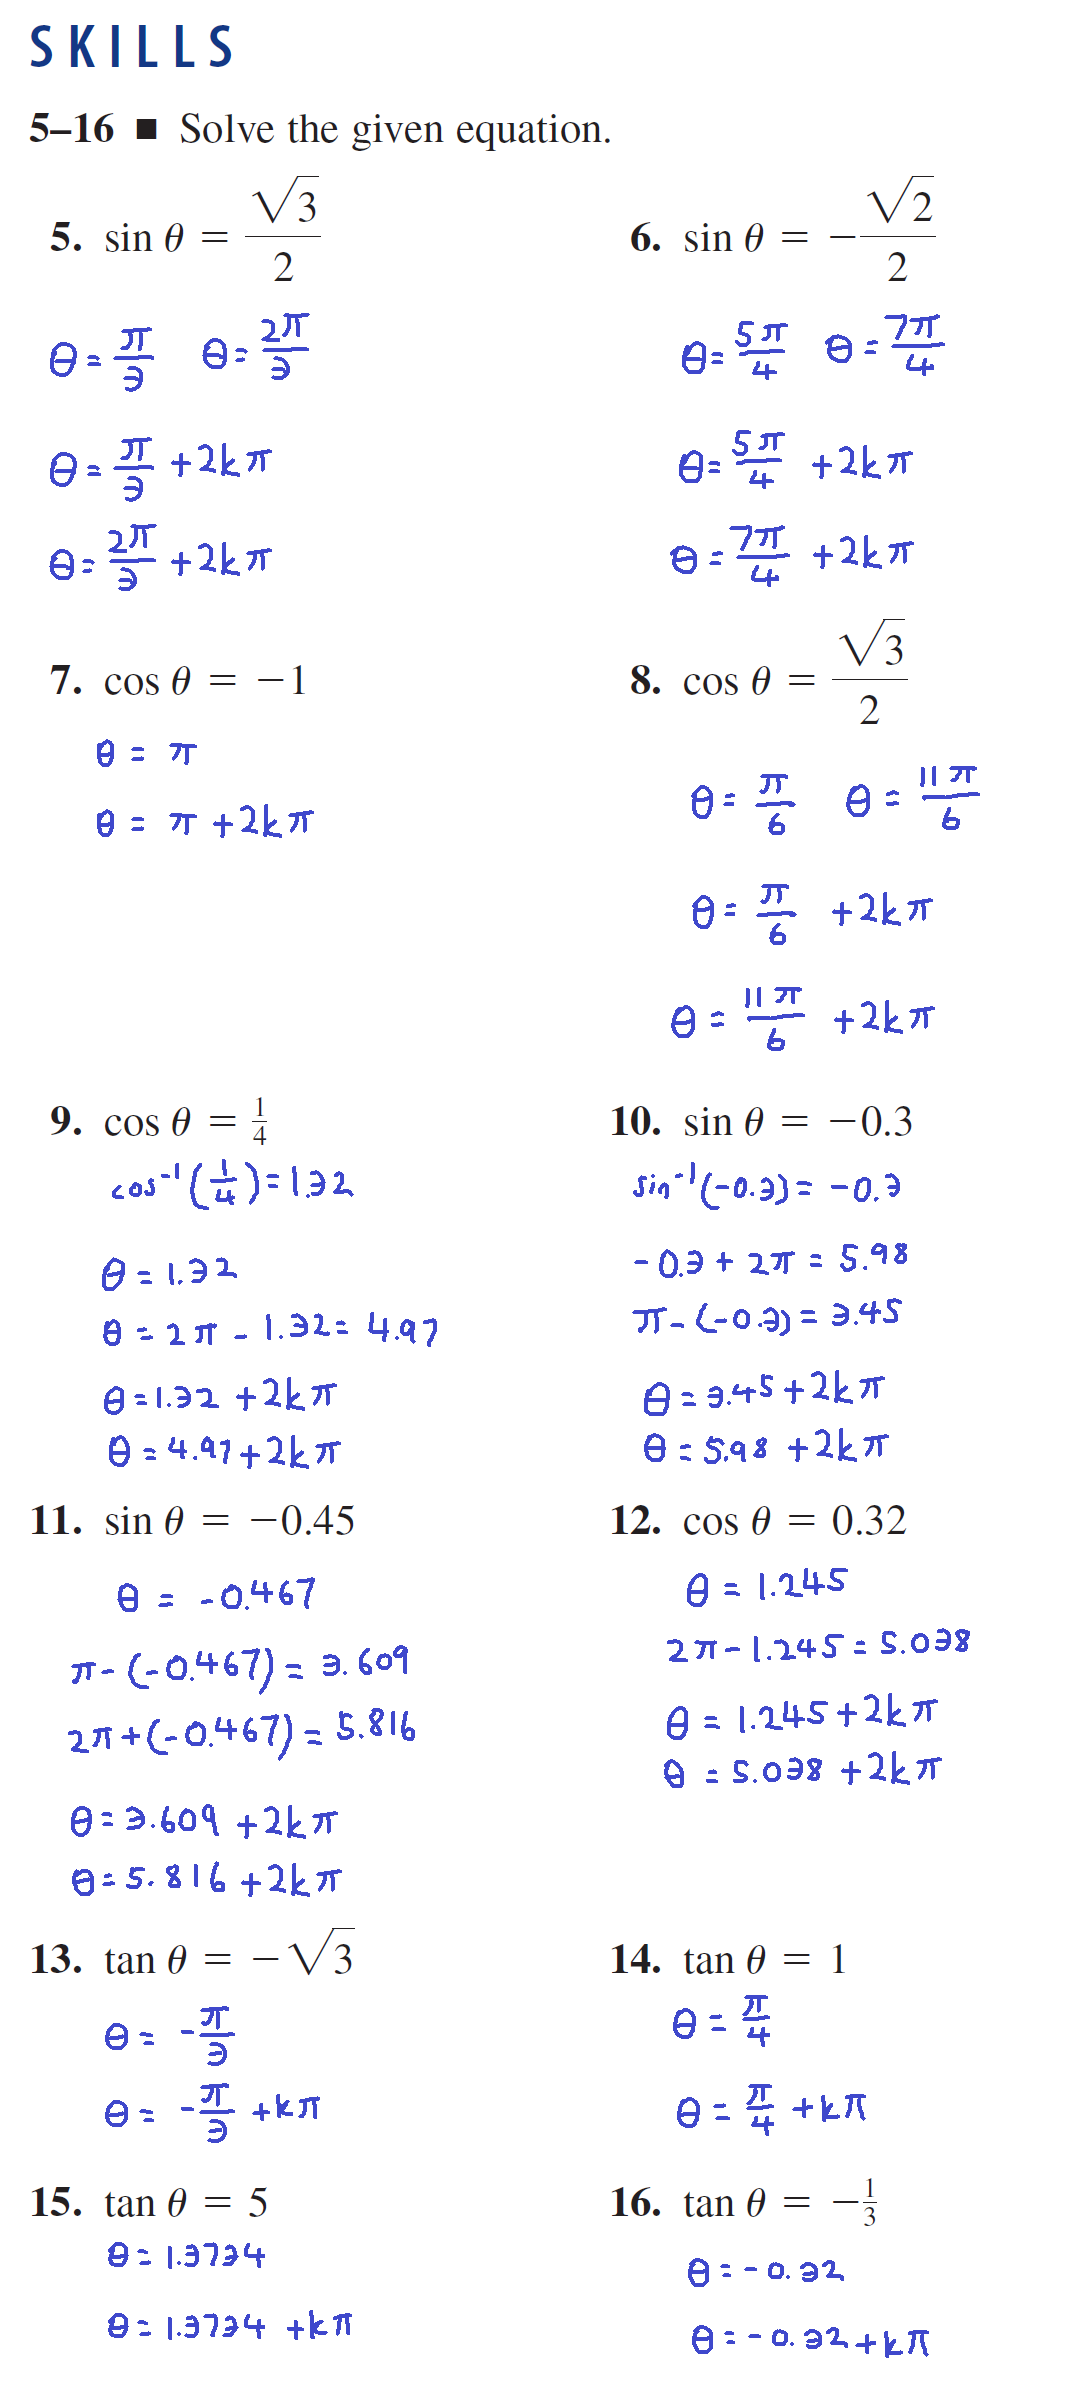 SKILLS
5–16 ■ Solve the given equation.
5. sin θ = √3/2
θ = π/3 θ = 2π/3
θ = π/3 + 2kπ
θ = 2π/3 + 2kπ
6. sin θ = −√2/2
θ = 5π/4 θ = 7π/4
θ = 5π/4 + 2kπ
θ = 7π/4 + 2kπ
7. cos θ = −1
θ = π
θ = π + 2kπ
8. cos θ = √3/2
θ = π/6 θ = 11π/6
θ = π/6 + 2kπ
θ = 11π/6 + 2kπ
9. cos θ = 1/4
cos⁻¹(1/4) = 1.32
θ = 1.32
θ = 2π - 1.32 = 4.97
θ = 1.32 + 2kπ
θ = 4.97 + 2kπ
10. sin θ = −0.3
sin⁻¹(-0.3) = -0.3
-0.3 + 2π = 5.98
π - (-0.3) = 3.45
θ = 3.45 + 2kπ
θ = 5.98 + 2kπ
11. sin θ = −0.45
θ = -0.467
π - (-0.467) = 3.609
2π + (-0.467) = 5.816
θ = 3.609 + 2kπ
θ = 5.816 + 2kπ
12. cos θ = 0.32
θ = 1.245
2π - 1.245 = 5.038
θ = 1.245 + 2kπ
θ = 5.038 + 2kπ
13. tan θ = −√3
θ = -π/3
θ = -π/3 + kπ
14. tan θ = 1
θ = π/4
θ = π/4 + kπ
15. tan θ = 5
θ = 1.3734
θ = 1.3734 + kπ
16. tan θ = −1/3
θ = -0.32
θ = -0.32 + kπ